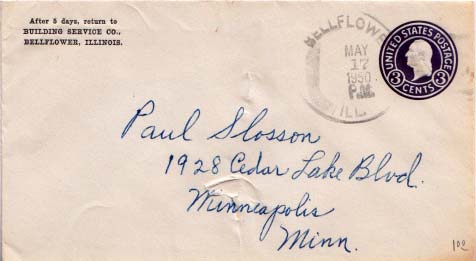 After 5 days, return to
BUILDING SERVICE CO.,
BELLFLOWER, ILLINOIS.
BELLFLOWER
MAY
17
1950
P.M.
ILL.
UNITED STATES POSTAGE
3 CENTS 3
Paul Slosson
1928 Cedar Lake Blvd.
Minneapolis
Minn.
100